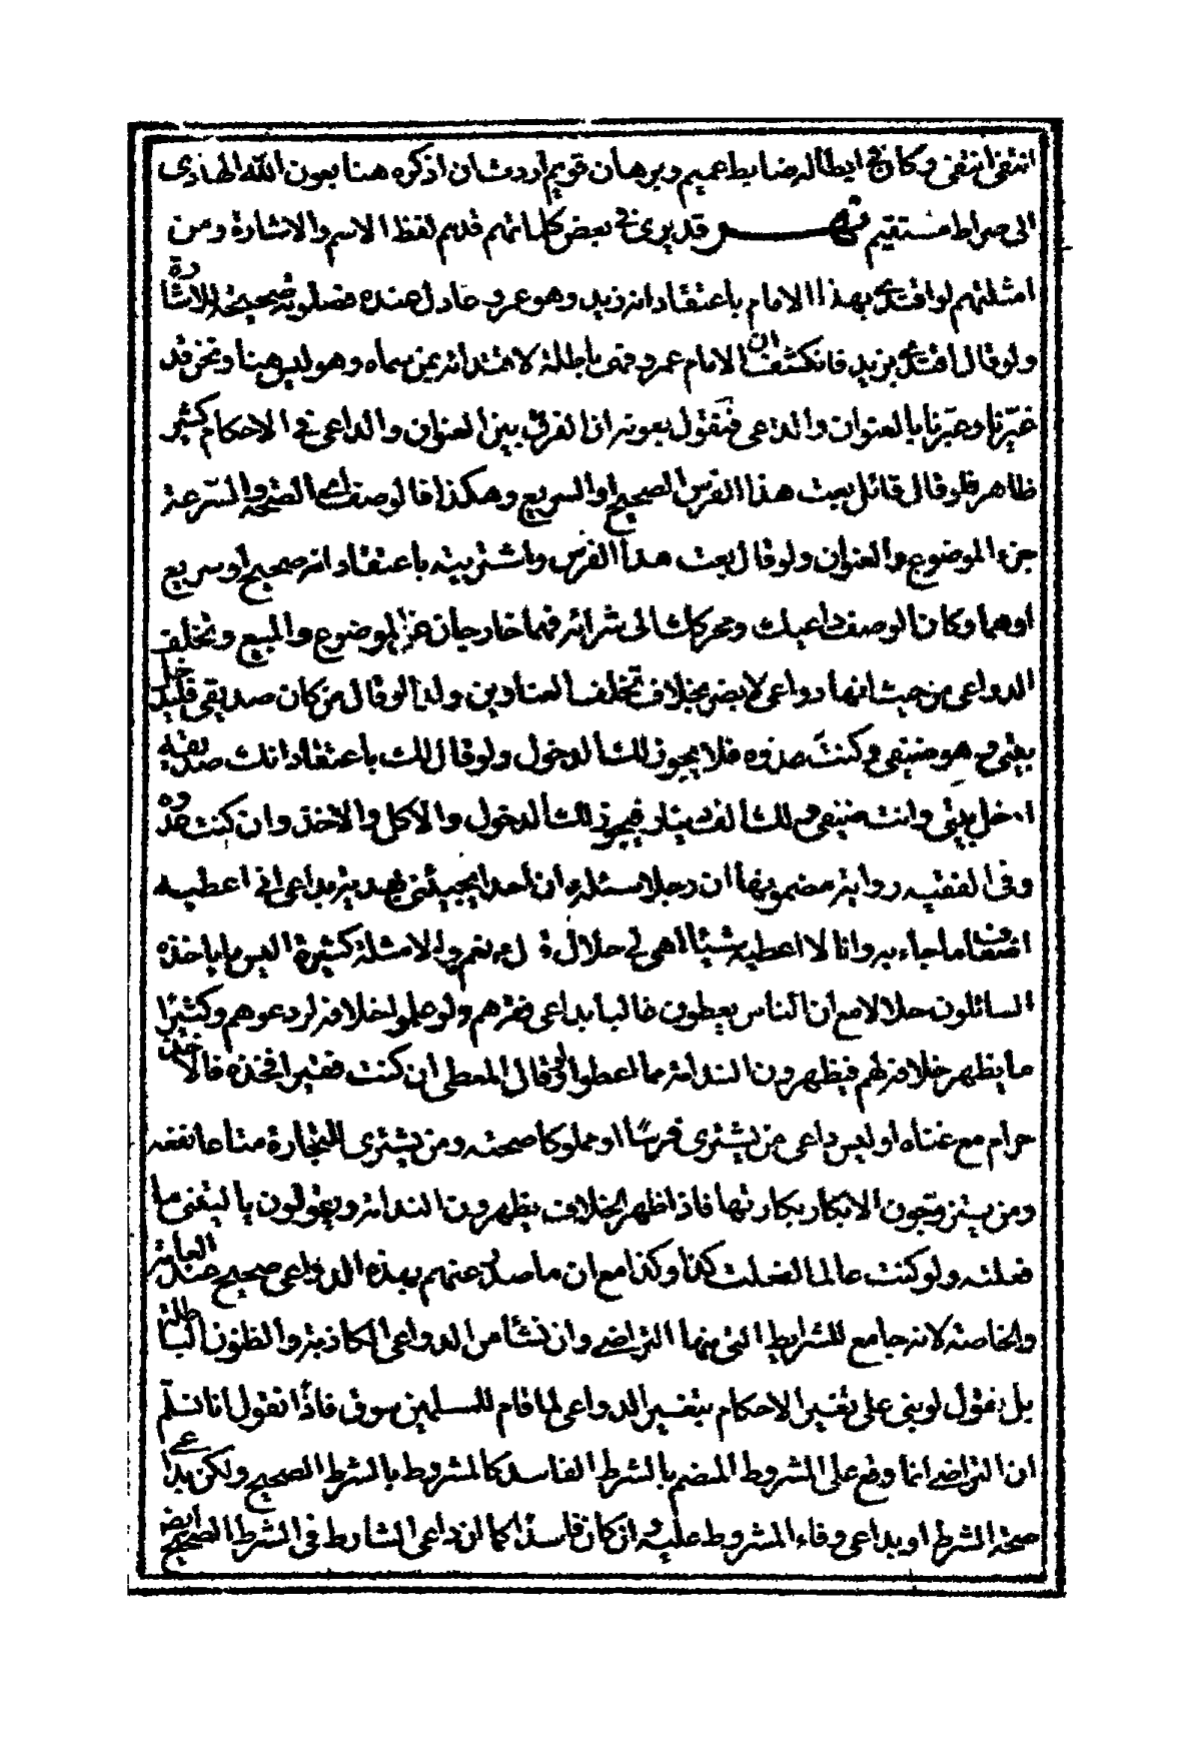 انتفى انتفى وكان في ابطاله ضابط عميم وبرهان قويم اردت ان اذكره هنا بعون الله الهادى
الى صراط مستقيم قد يرى في بعض كلماتهم قدهم لفظ الاسم والاشارة ومن
امثلتهم لو اقتدى بهذا الامام باعتقاد انه زيد وهو عمرو عادل عنده فصلوته صحيحة للاشارة
ولو قال اقتدى بزيد فانكشف ان الامام عمرو فهى باطلة لاقتدائه بمن سماه وهو ليس هنا ونحن قد
غيّرنا وعبّرنا بالعنوان والداعى فنقول بعونه ان الفرق بين العنوان والداعى في الاحكام كثير
ظاهر فلو قال قائل بعت هذا الفرس الصحيح او السريع وهكذا فالوصف اى الصحة والسرعة
جزء الموضوع والعنوان ولو قال بعت هذا الفرس واشتريته باعتقاد انه صحيح او سريع
اوهما وكان الوصف داعيك ومحركك الى شرائه فهما خارجان عن الموضوع والمبيع وتخلف
الدواعى من حيث انها دواعى لا يضر بخلاف تخلف العناوين ولذا لو قال من كان صديقى فليدخل
بيتى وهو ضيفى وكنت عدوه فلا يجوز لك الدخول ولو قال لك باعتقاد انك صديقه
ادخل بيتى وانت ضيفى ولك الف دينار فيجوز لك الدخول والاكل والاخذ وان كنت عدوه
وفى الفقيه رواية مضمونها ان رجلا سئله ان احدا يجيئنى بهدية بداعى انى اعطيه
اضعاف ما جاء به وانا لا اعطيه شيئا اهى لى حلال قال ع نعم وله الامثلة كثيرة اليس ما ياخذه
السائلون حلالا مع ان الناس يعطون غالبا بداعى فقرهم ولو علموا خلافه لردعوهم وكثيرا
ما يظهر خلافه لهم فيظهرون الندامة مما اعطوا ولو قال المعطى ان كنت فقيرا فخذه فالاخذ
حرام مع غناه او ليس داعى من يشترى فرسًا او مملوكا صحته ومن يشترى للتجارة متاعا نفعه
ومن يتزوجون الابكار بكارتها فاذا ظهر الخلاف يظهرون الندامة ويقولون يا ليتنى ما
فعلته ولو كنت عالما لفعلت كذا وكذا مع ان ما صدر عنهم بهذه الدواعى صحيح عند العامة
والخاصة لانه جامع للشرايط التى منها التراضى وان نشأ من الدواعى الكاذبة والظنون الباطلة
بل نقول لو بنى على تغيير الاحكام بتغيير الدواعى لما قام للمسلمين سوق فاذًا نقول انا نسلّم
ان التراضى انما وقع على المشروط المنضم بالشرط الفاسد كالمشروط بالشرط الصحيح ولكن بداعى
صحة الشرط او بداعى وفاء المشروط عليه وان كان فاسدًا كما ان داعى الشارط فى الشرط الصحيح ايضا